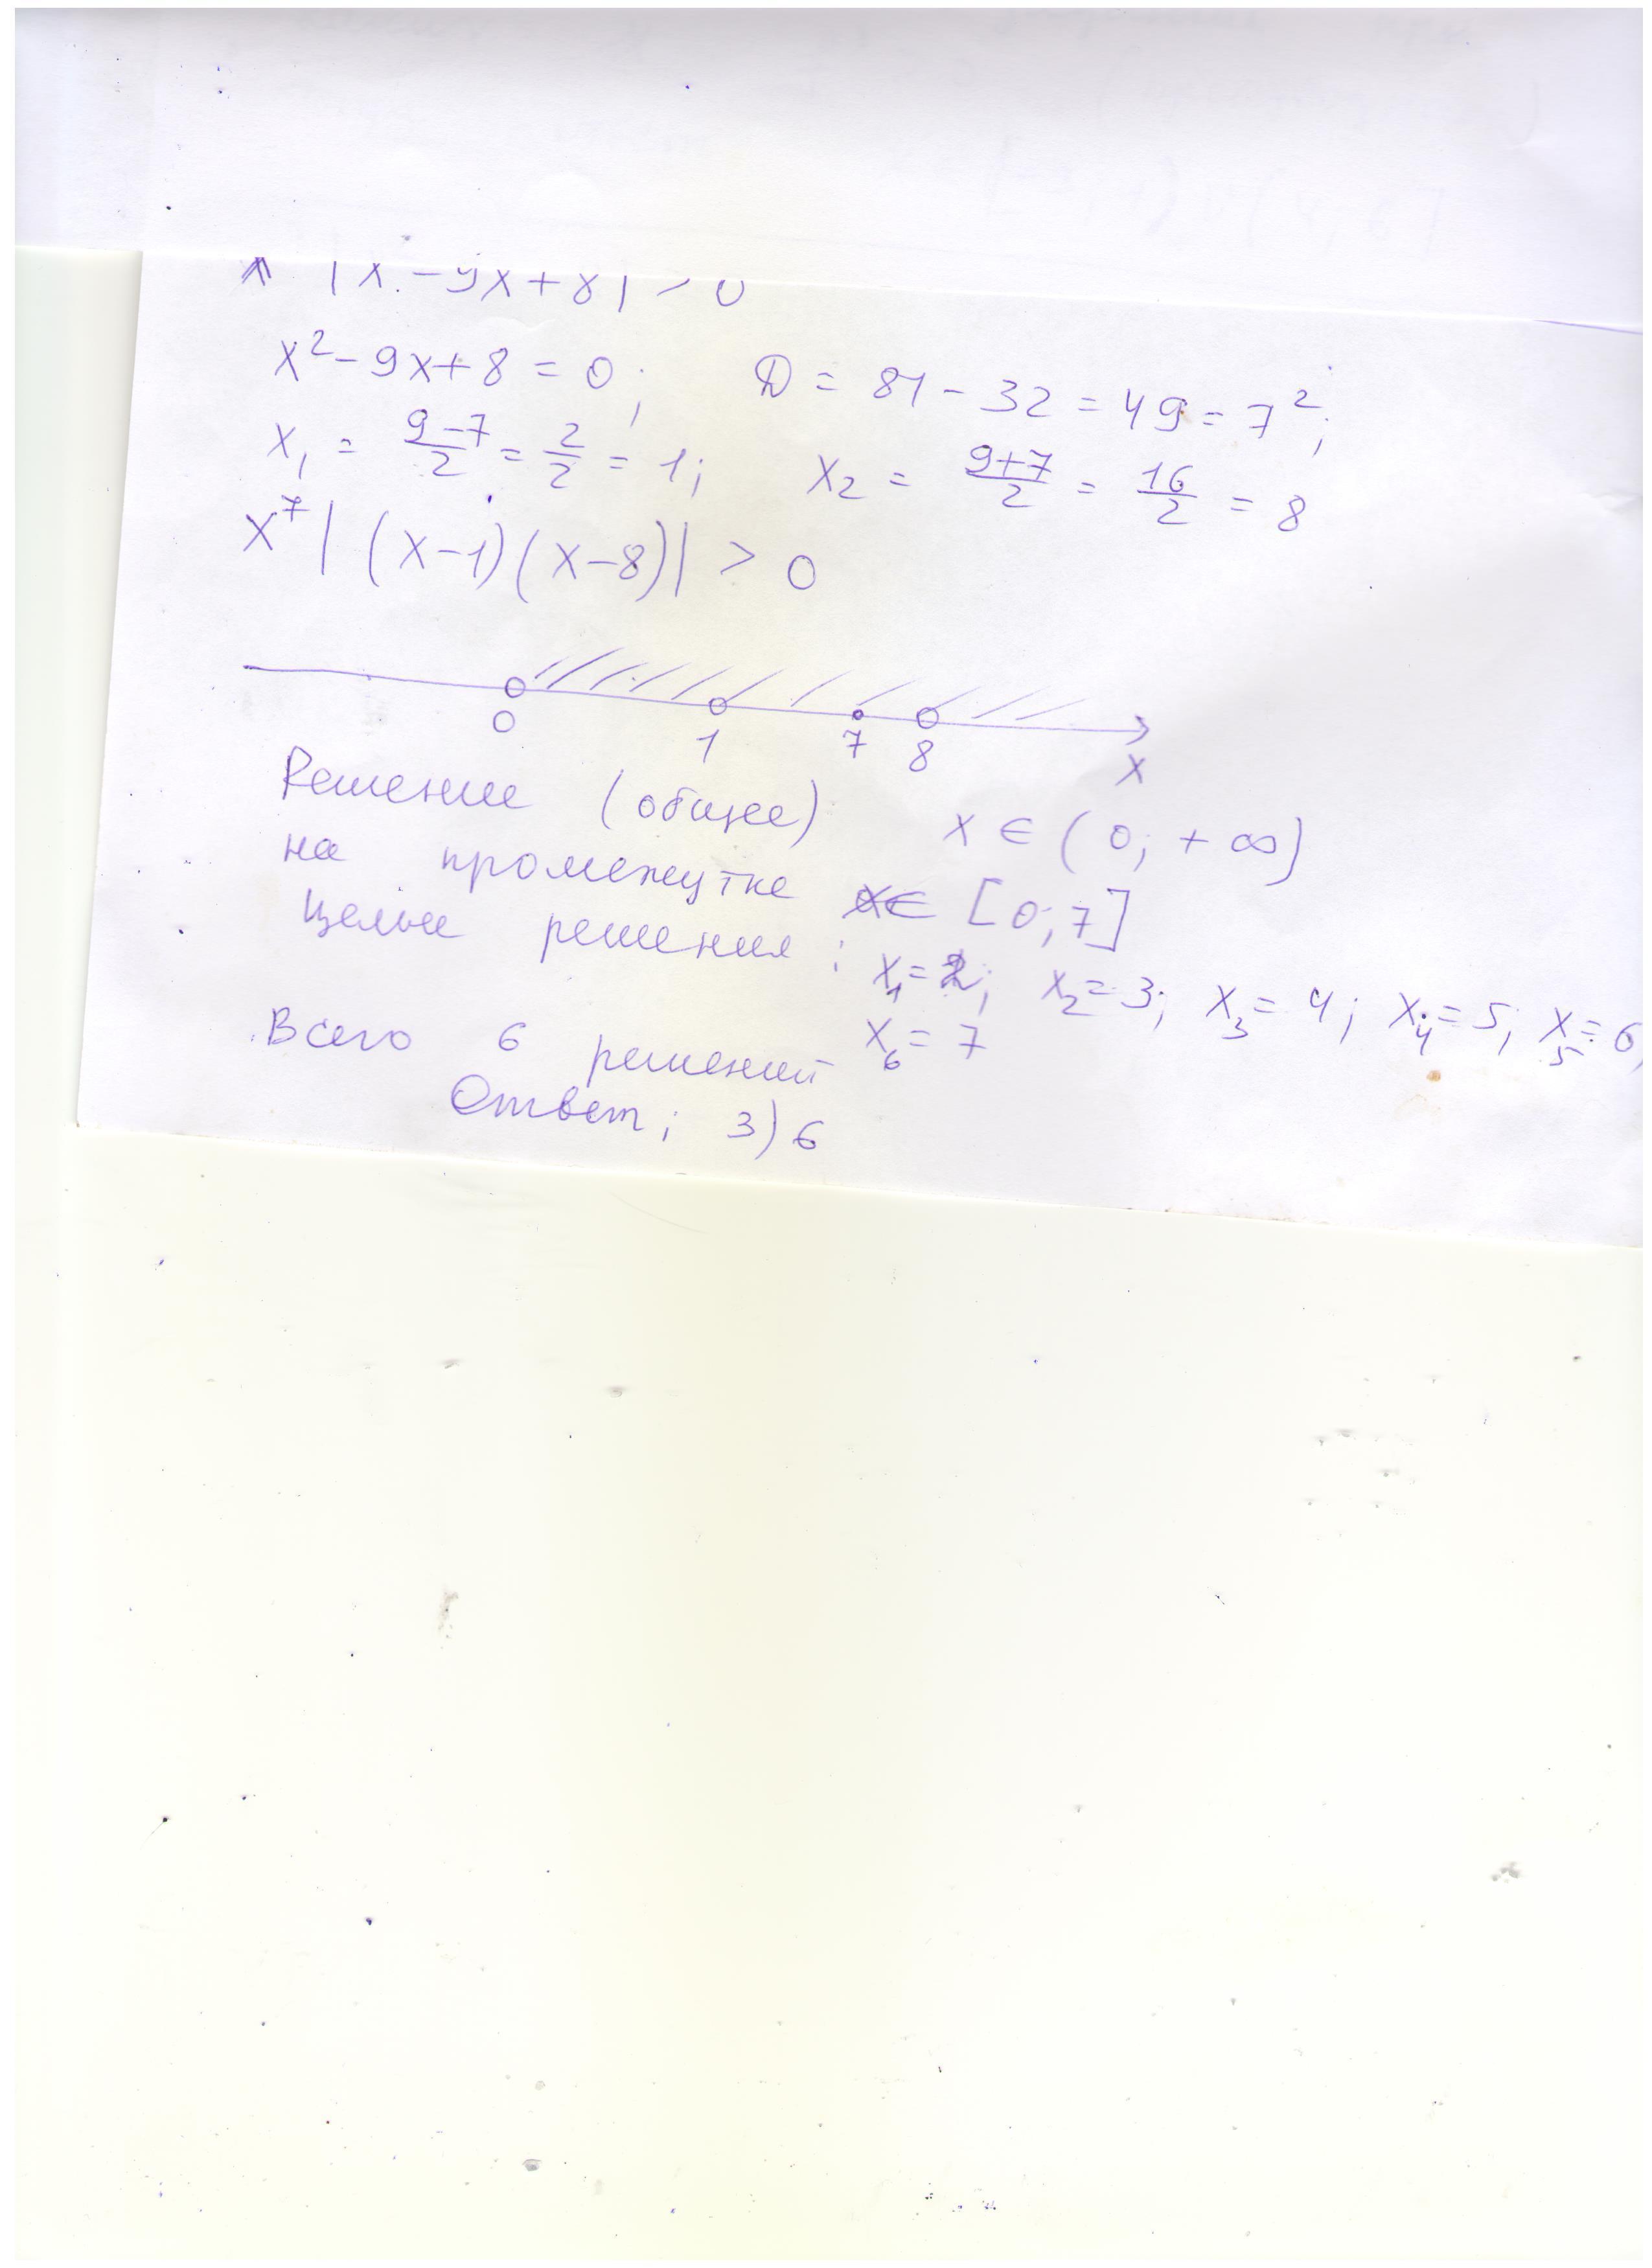 | x - 9x + 8 | > 0
x² - 9x + 8 = 0; D = 81 - 32 = 49 = 7²;
x₁ = (9-7)/2 = 2/2 = 1; x₂ = (9+7)/2 = 16/2 = 8
x⁷ | (x-1)(x-8)| > 0
0 1 7 8 x
Решение (общее) x ∈ (0; + ∞)
на промежутке [0; 7]
Целые решения: x₁ = 2; x₂ = 3; x₃ = 4; x₄ = 5; x₅ = 6;
x₆ = 7
Всего 6 решений
Ответ; 3) 6